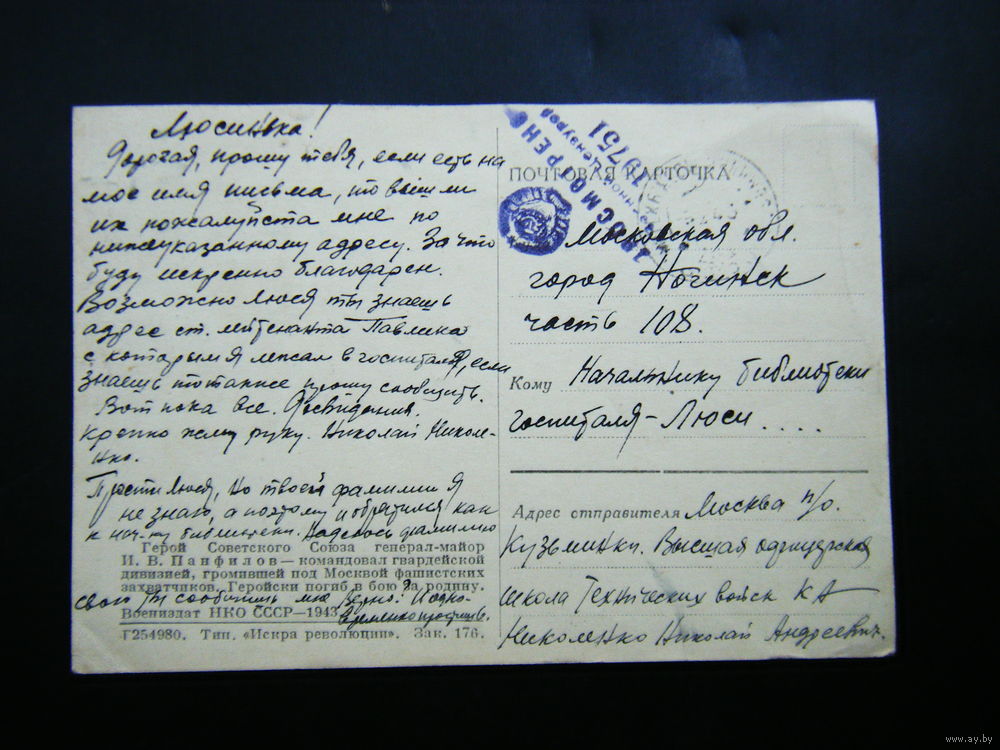 Люсинька!
Дорогая, прошу тебя, если есть на
мое имя письма, то вышли
их пожалуйста мне по
нижеуказанному адресу. За что
буду искренно благодарен.
Возможно Люся ты знаешь
адрес ст. лейтенанта Павлика
с которым я лежал в госпитале, если
знаешь то также прошу сообщить.
Вот пока все. Досвидания.
Крепко жму руку. Николай Николе-
нко.
Прости Люся, но твоей фамилии я
не знаю, а поэтому и обратился как
к нач-ку библиотеки. Надеюсь фамилию
Герой Советского Союза генерал-майор
И. В. Панфилов — командовал гвардейской
дивизией, громившей под Москвой фашистских
захватчиков. Геройски погиб в бою за родину.
свою ты сообщишь мне верно? И одно-
Воениздат НКО СССР—1943
временно
Г254980. Тип. «Искра революции». Зак. 176.
ПРОСМОТРЕНО
Военной Цензурой
19751
ПОЧТОВАЯ КАРТОЧКА
Московская обл.
город Ногинск
часть 108.
Кому Начальнику библиотеки
госпиталя - Люси . . . .
Адрес отправителя Москва п/о.
Кузьминки. Высшая офицерская
школа Технических войск КА
Николенко Николай Андреевич.
www.ay.by